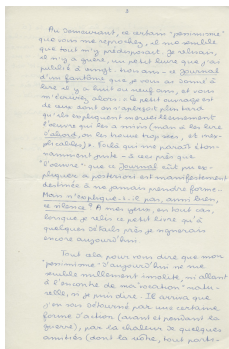 3
Au demeurant, ce certain "pessimisme"
que vous me reprochez, il me semble
que tout m'y prédisposait. Je relisais,
il n'y a guère, un petit livre que j'ai
publié à vingt-trois ans - le Journal
d'un fantôme que je vous ai donné à
lire il y a huit ou neuf ans, et vous
m'écriviez, alors : "ce petit ouvrage est
de ceux dont on s'aperçoit plus tard
qu'ils expliquent merveilleusement
l'œuvre qui les a suivis (mais à les lire
d'abord, on les trouve trop secs, et inex-
plicables)". Voilà qui me paraît éton-
namment juste - à ceci près que
"l'œuvre" que ce Journal eût pu ex-
pliquer a posteriori est manifestement
destinée à ne jamais prendre forme.
Mais n'explique-t-il pas, aussi bien,
ce silence ? À mes yeux, en tout cas,
lorsque je relis ce petit livre qu'à
quelques détails près je signerais
encore aujourd'hui.
Tout cela pour vous dire que mon
"pessimisme" d'aujourd'hui ne me
semble nullement insolite, ni allant
à l'encontre de ma "vocation" natu-
relle, si je puis dire. Il arriva que
j'en sois détourné par une certaine
forme d'action (avant et pendant la
guerre), par la chaleur de quelques
amitiés (dont la vôtre, tout parti-